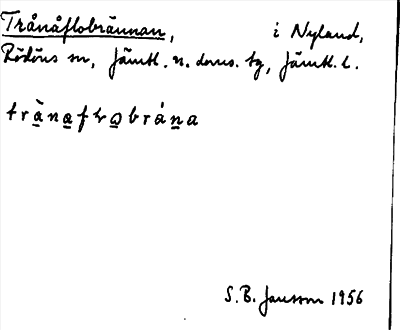 Trånåflobrännan, i Nyland,
Rödöns sn, Jämtl. n. doms. tg, Jämtl. l.
trånaflobràna
S. B. Jansson 1956